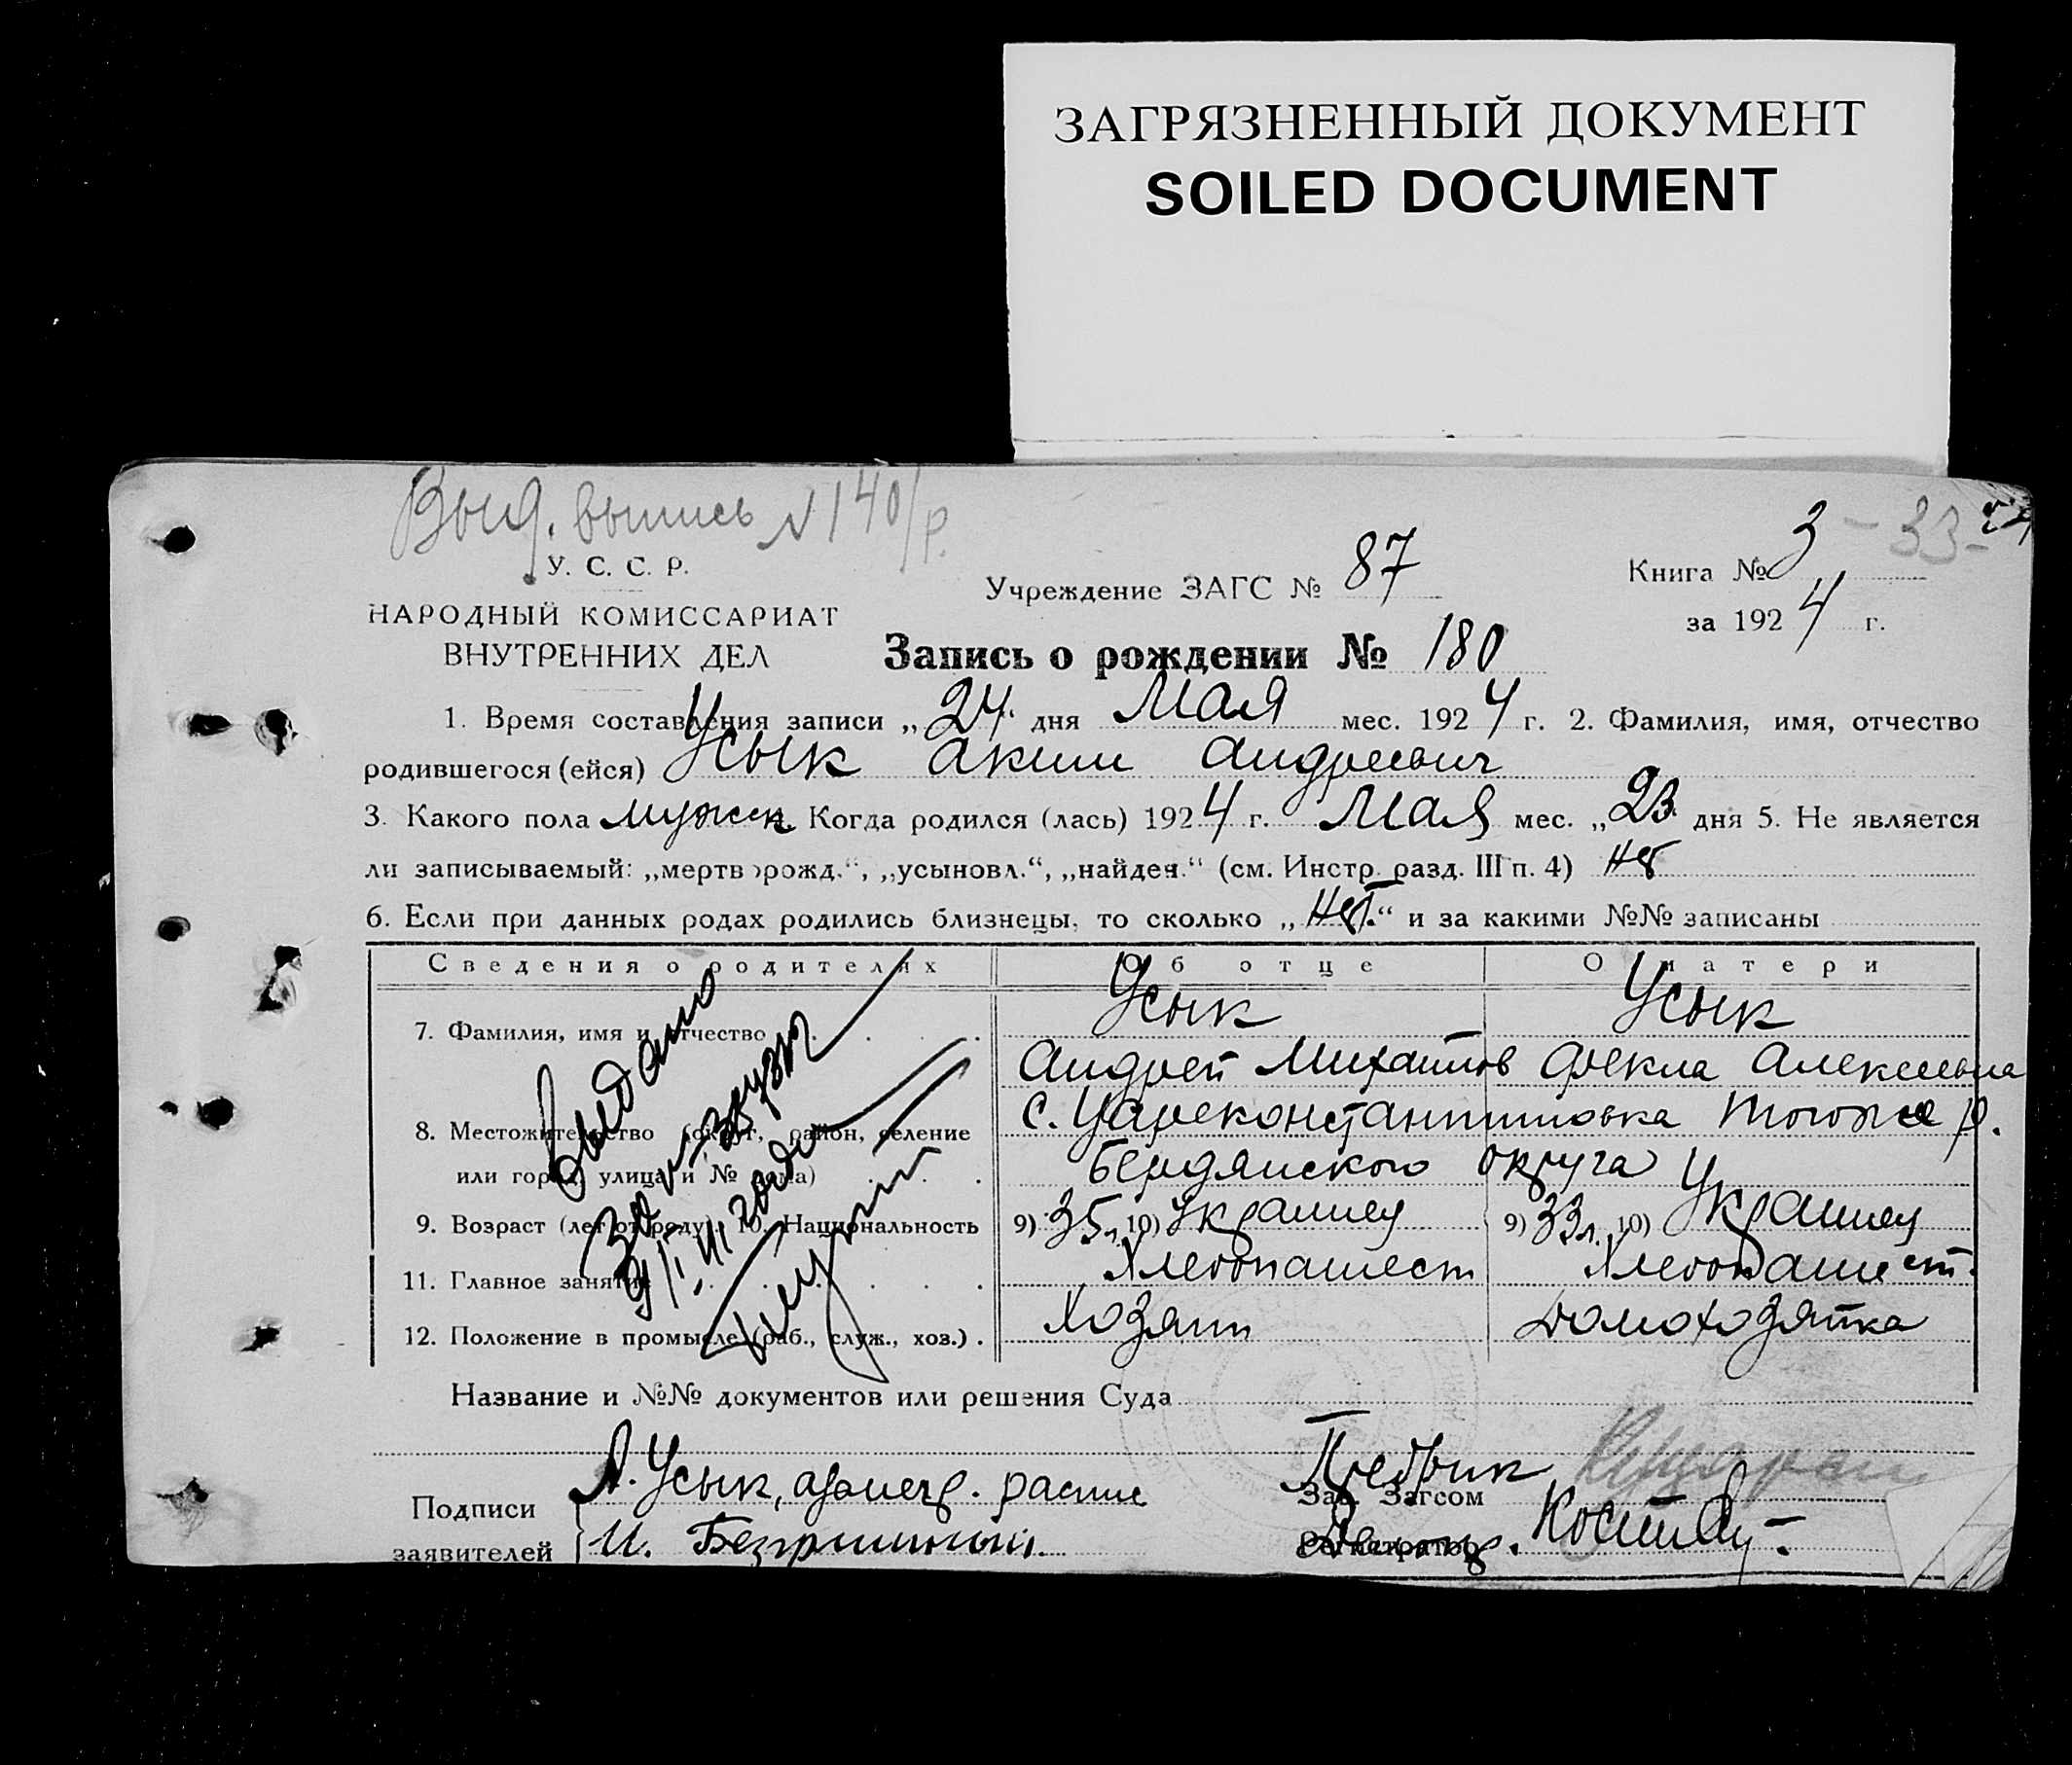 ЗАГРЯЗНЕННЫЙ ДОКУМЕНТ
SOILED DOCUMENT
Выд. выпись N 140/р.
3 - 33 -
У. С. С. Р.
НАРОДНЫЙ КОМИССАРИАТ
ВНУТРЕННИХ ДЕЛ
Учреждение ЗАГС № 87
Книга № 3
за 1924 г.
Запись о рождении № 180
1. Время составления записи „24“ дня Мая мес. 1924 г. 2. Фамилия, имя, отчество
родившегося (ейся) Усык Аким Андреевич
3. Какого пола мужск. Когда родился (лась) 1924 г. Мая мес. „23 дня 5. Не является
ли записываемый: „мертворожд.“, „усыновл.“, „найден.“ (см. Инстр. разд. III п. 4) нет
6. Если при данных родах родились близнецы, то сколько „нет.“ и за какими №№ записаны
Сведения о родителях Об отце О матери
7. Фамилия, имя и отчество Усык Усык
Андрей Михайлов Фекла Алексеевна
8. Местожительство (округ, район, селение с. Цареконстантиновка того же р.
или город, улица и № дома) Бердянского округа
9. Возраст (лет от роду). 10. Национальность 9) 35 л. 10) Украинец 9) 33 л. 10) Украинец
11. Главное занятие Хлебопашест Хлебопашест.
12. Положение в промысле (раб., служ., хоз.) Хозяин Домохозяйка
Выдано
за №
года
Название и №№ документов или решения Суда
Подписи А. Усык, распис
Зав. Загсом
заявителей И.
Регистратор